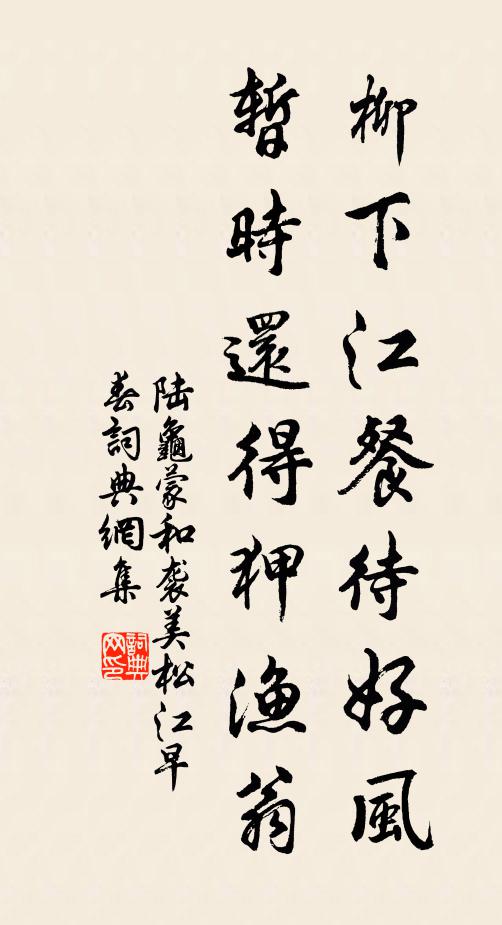 柳下江餐待好風
暫時還得狎漁翁
陆龜蒙和袭美松江早
春詞典網集
詞典
网印